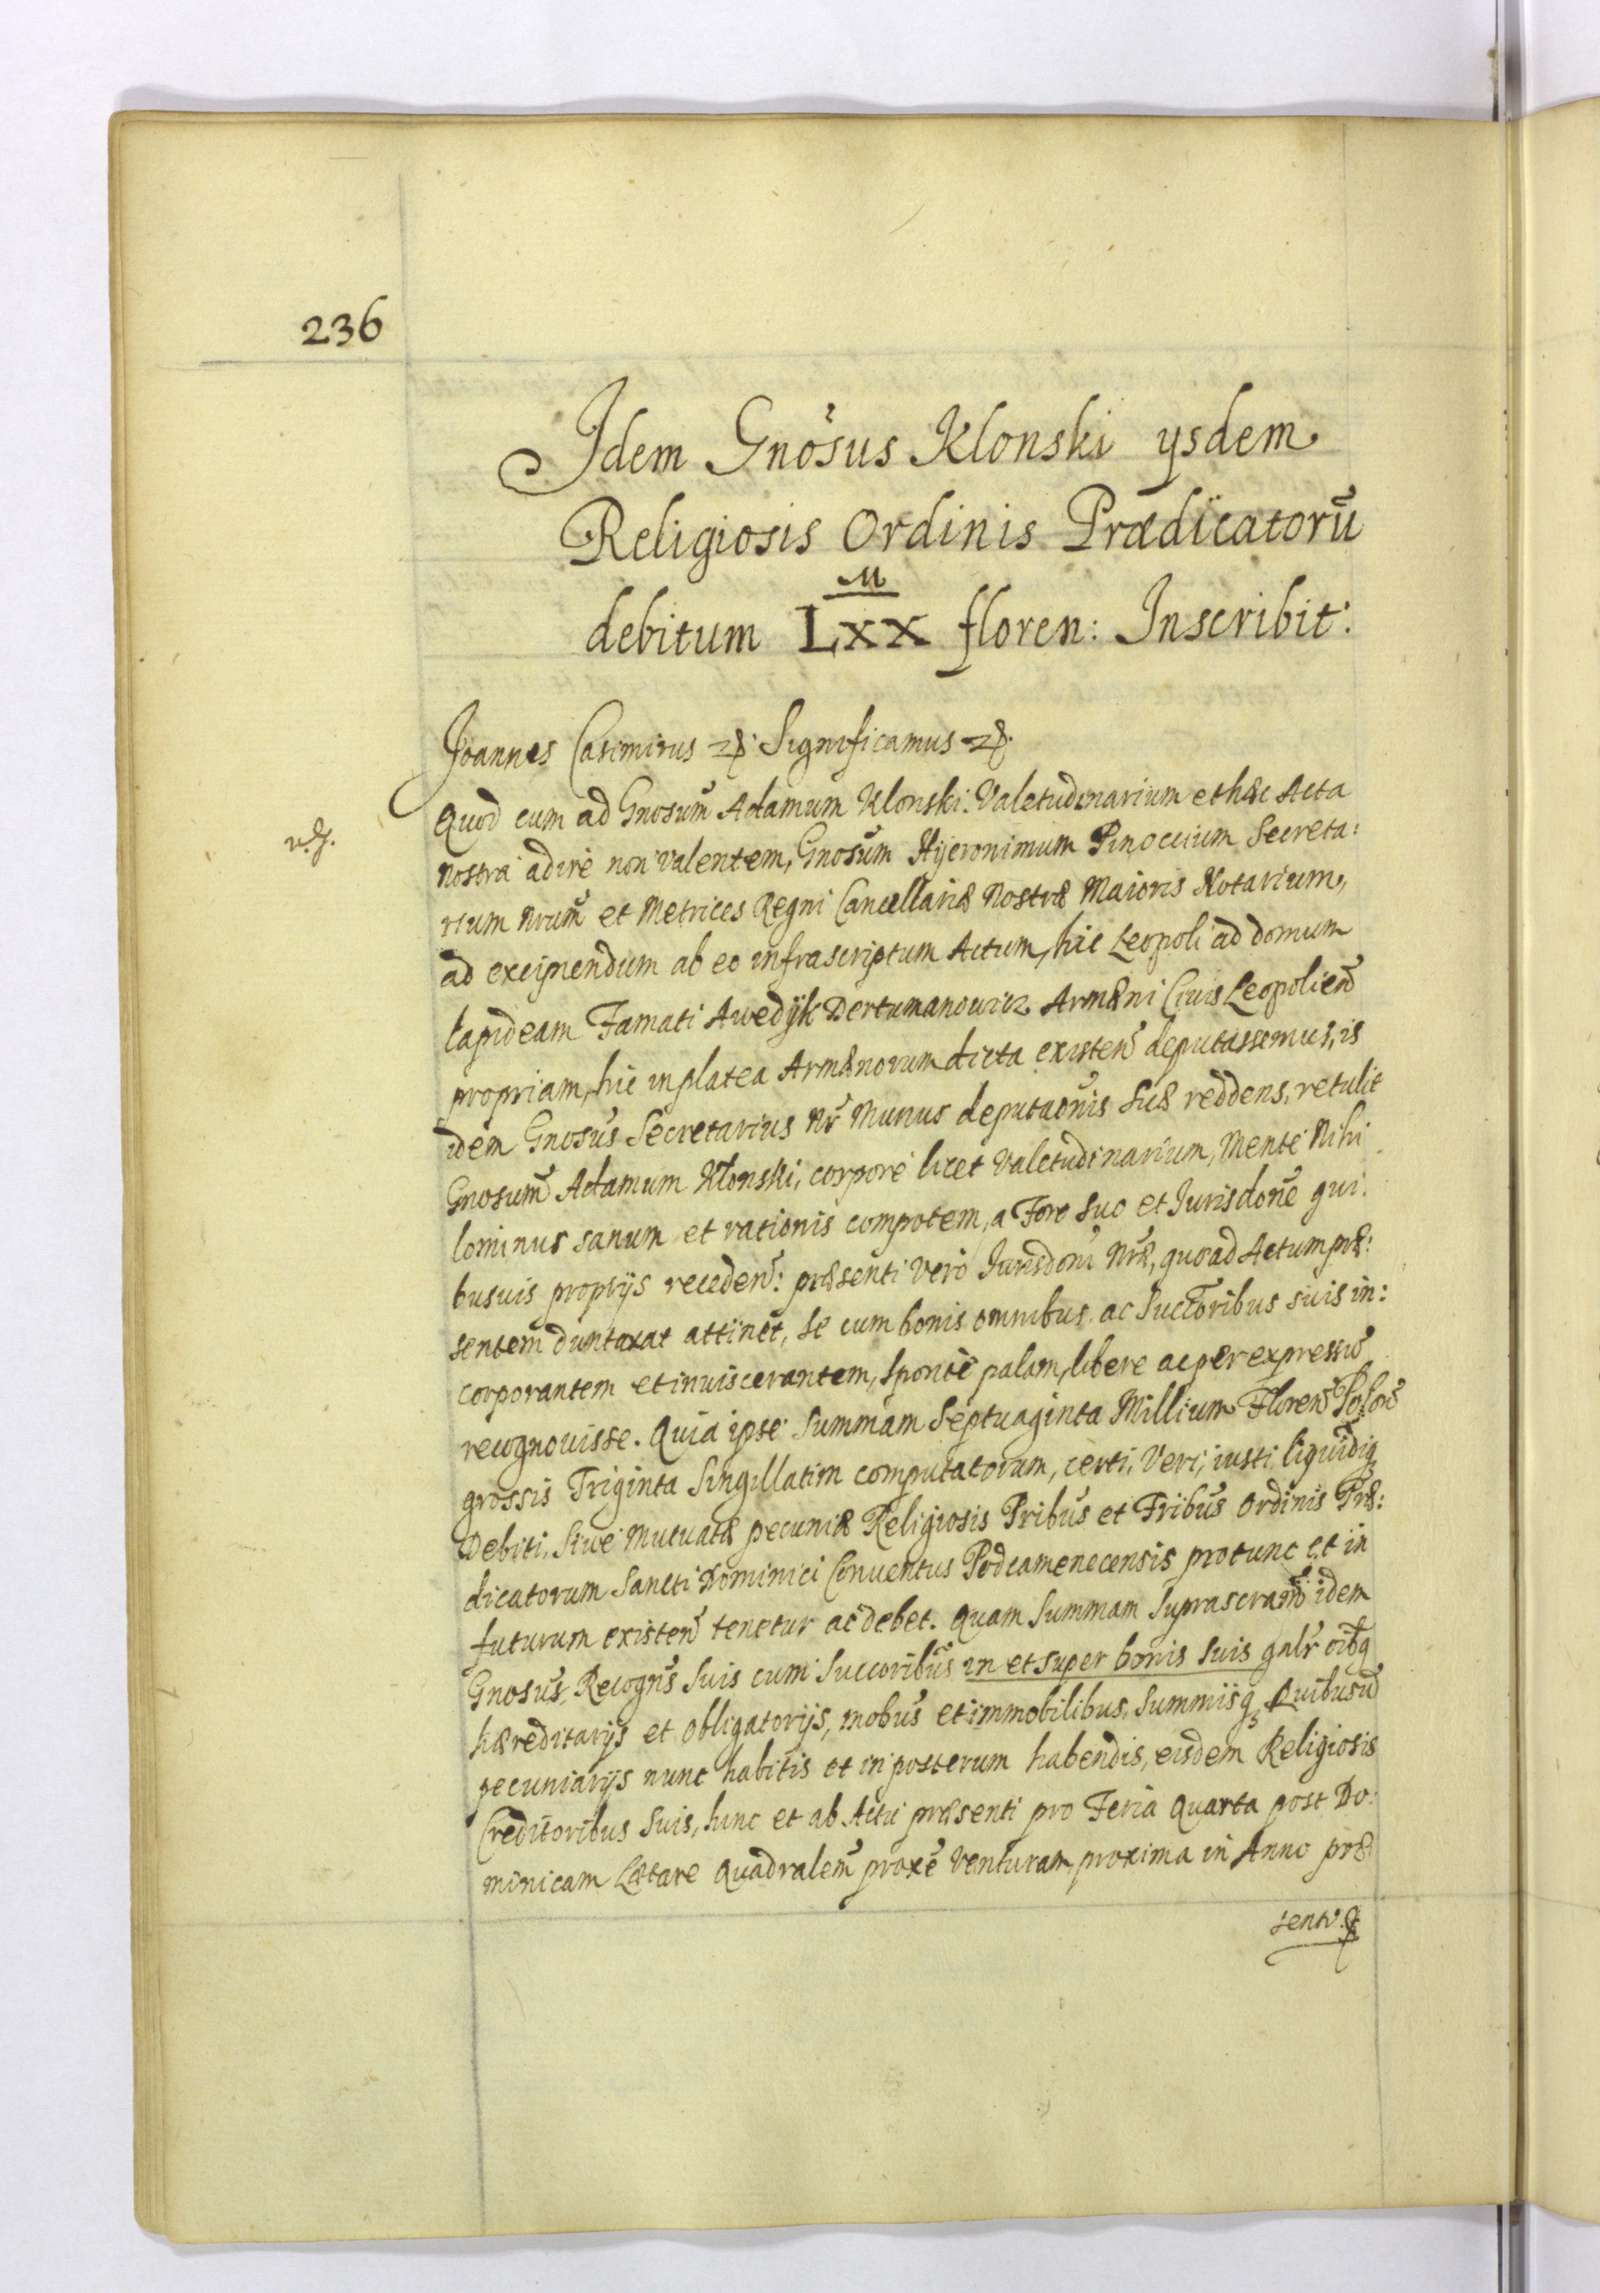 236
Idem Gnosus Klonski ysdem
Religiosis Ordinis Prædicatorū
M
debitum Lxx floren: Inscribit:
Joannes Casimirus &. Significamus &.
Quod cum ad Gnosum Adamum Klonski. Valetudinarium et hæc Acta
nostra adire non valentem, Gnosum Hijeronimum Pinoccium Secreta:
rium Nrum et Metrices Regni Cancellariæ Nostræ Maioris Notarium,
ad excipiendum ab eo infrascriptum Actum, hic Leopoli ad domum
lapideam Famati Awedyk Dertumanowicz Armæni Civis Leopolien
propriam, hic in platea Armænorum dicta existen deputassemus, is
idem Gnosus Secretarius Nr Munus deputaonis suæ reddens, retulit
Gnosum Adamum Klonski, corpore licet Valetudinarium, Mente Nihi
lominus sanum et rationis compotem, a Foro suo et Jurisdone qui
busuis proprijs receden: præsenti vero Jurisdoni Nræ, quo ad Actum præ:
sentem duntaxat attinet, se cum bonis omnibus ac Succoribus suis in:
corporantem et inuiscerantem, sponte palam, libere ac per expressum
recognouisse. Quia ipse Summam Septuaginta Millium Floren Polon
grossis Triginta Singillatim computatorum, certi, Veri, iusti liquidiq
Debiti, Siue Mutuatæ pecuniæ Religiosis Pribus et Fribus Ordinis Præ:
dicatorum Sancti Dominici Conuentus Podcamenecensis protunc et in
futurum existen tenetur ac debet. Quam Summam Suprascram idem
Gnosus Recogns Suis cum Succoribus in et super bonis suis gnlr oibq
hæreditarijs et obligatorijs, mobus et immobilibus, Summisq Quibusu
pecuniarijs nunc habitis et in posterum habendis, eisdem Religiosis
Creditoribus Suis, hinc et ab Actu præsenti pro Feria Quarta post Do:
minicam Lætare Quadralem proxe Venturam proxima in Anno præ
senti &